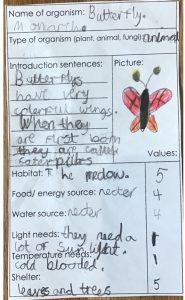 Name of organism: Butterfly.
Monarch.
Type of organism (plant, animal, fungi): animal
Introduction sentences: Picture:
Butterflys
have very
colorful wings.
When they
are first born
they are called
caterpillrs
Values:
Habitat: The medow. 5
Food/ energy source: necter 4
Water source: necter 4
Light needs: they need a 1
lot of sun light.
Temperature needs: 1
cold blooded.
Shelter: 5
leaves and trees